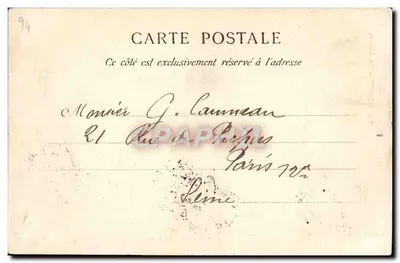 94
CARTE POSTALE
Ce côté est exclusivement réservé à l'adresse
Monsieur G. Caumeau
21 Rue de Picpus
Paris 12e
Seine